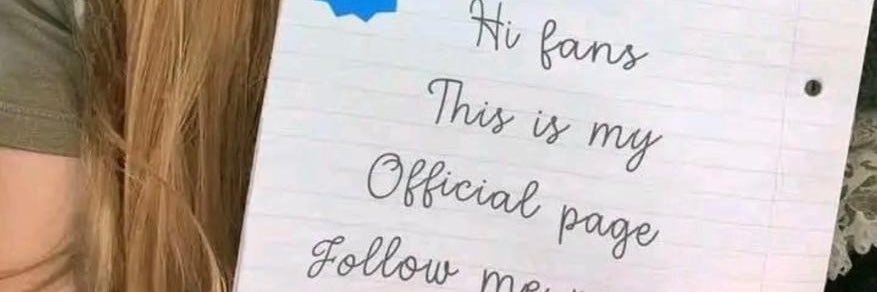 Hi fans
This is my
Official page
Follow me